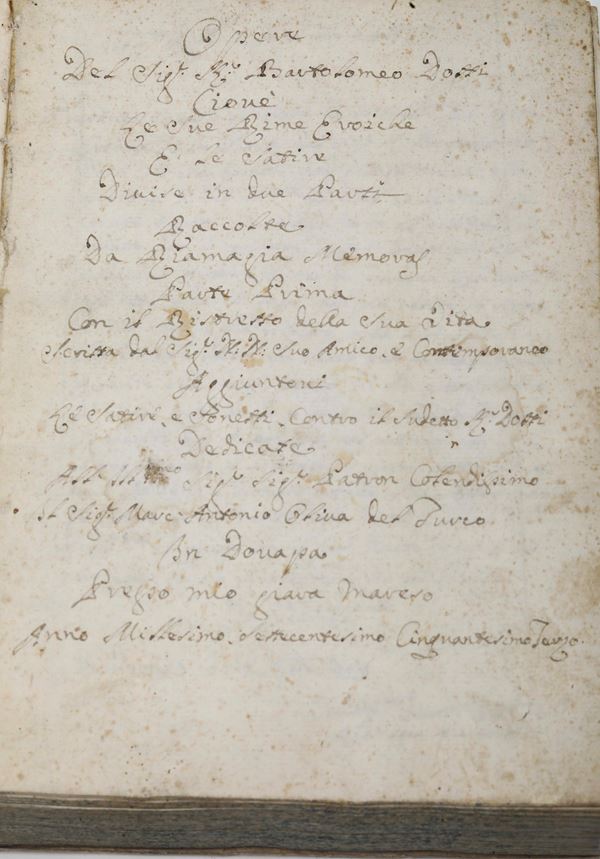 Opere
Del Sig.r K.r Bartolomeo Dotti
Ciouè
Le Sue Rime Eroiche
E le Satire
Diuise in due Parti
Raccolte
Da
Parte Prima
Con il Ristretto della Sua Vita
Scritta dal Sig.r N. N. Suo Amico, e Contemporaneo
Aggiuntoui
Le Satire, e Sonetti, Contro il Sudetto K.r Dotti
Dedicate
Sig.r Sig.r Patron Colendissimo
Il Sig.r Marc Antonio Oliua del Turco
In
Presso mio
Anno Millesimo Settecentesimo Cinquantesimo Terzo